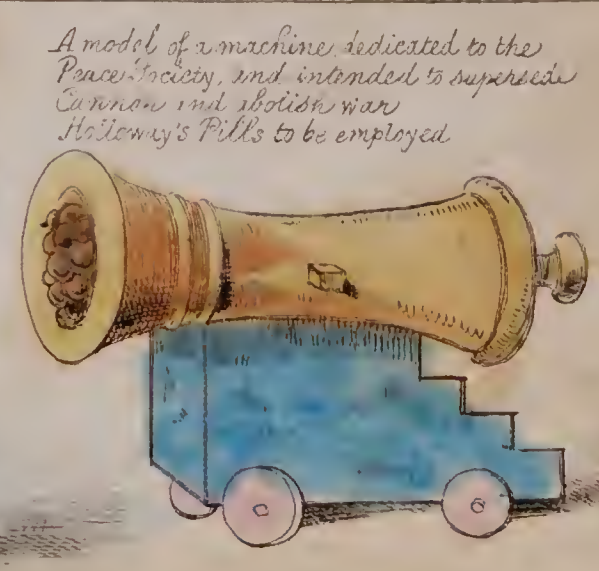 A model of a machine, dedicated to the
Peace Society, and intended to supersede
Cannon and abolish war
Holloway's Pills to be employed